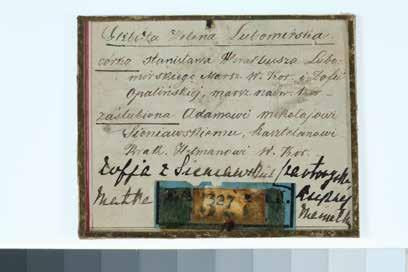 Elżbieta Helena Lubomirska
córka Stanisława Herakliusza Lubo-
mirskiego Marsz. W. Kor. i Zofii
Opalińskiej, marsz. nadw. kor.
zaślubiona Adamowi Mikołajowi
Sieniawskiemu, kasztelanowi
Krak. Hetmanowi W. Kor.
Zofja z Sieniawskich Czartoryska
Matka
327